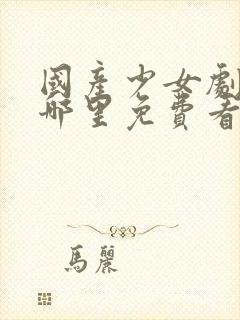 國產少女劇
哪里免費看
馬麗